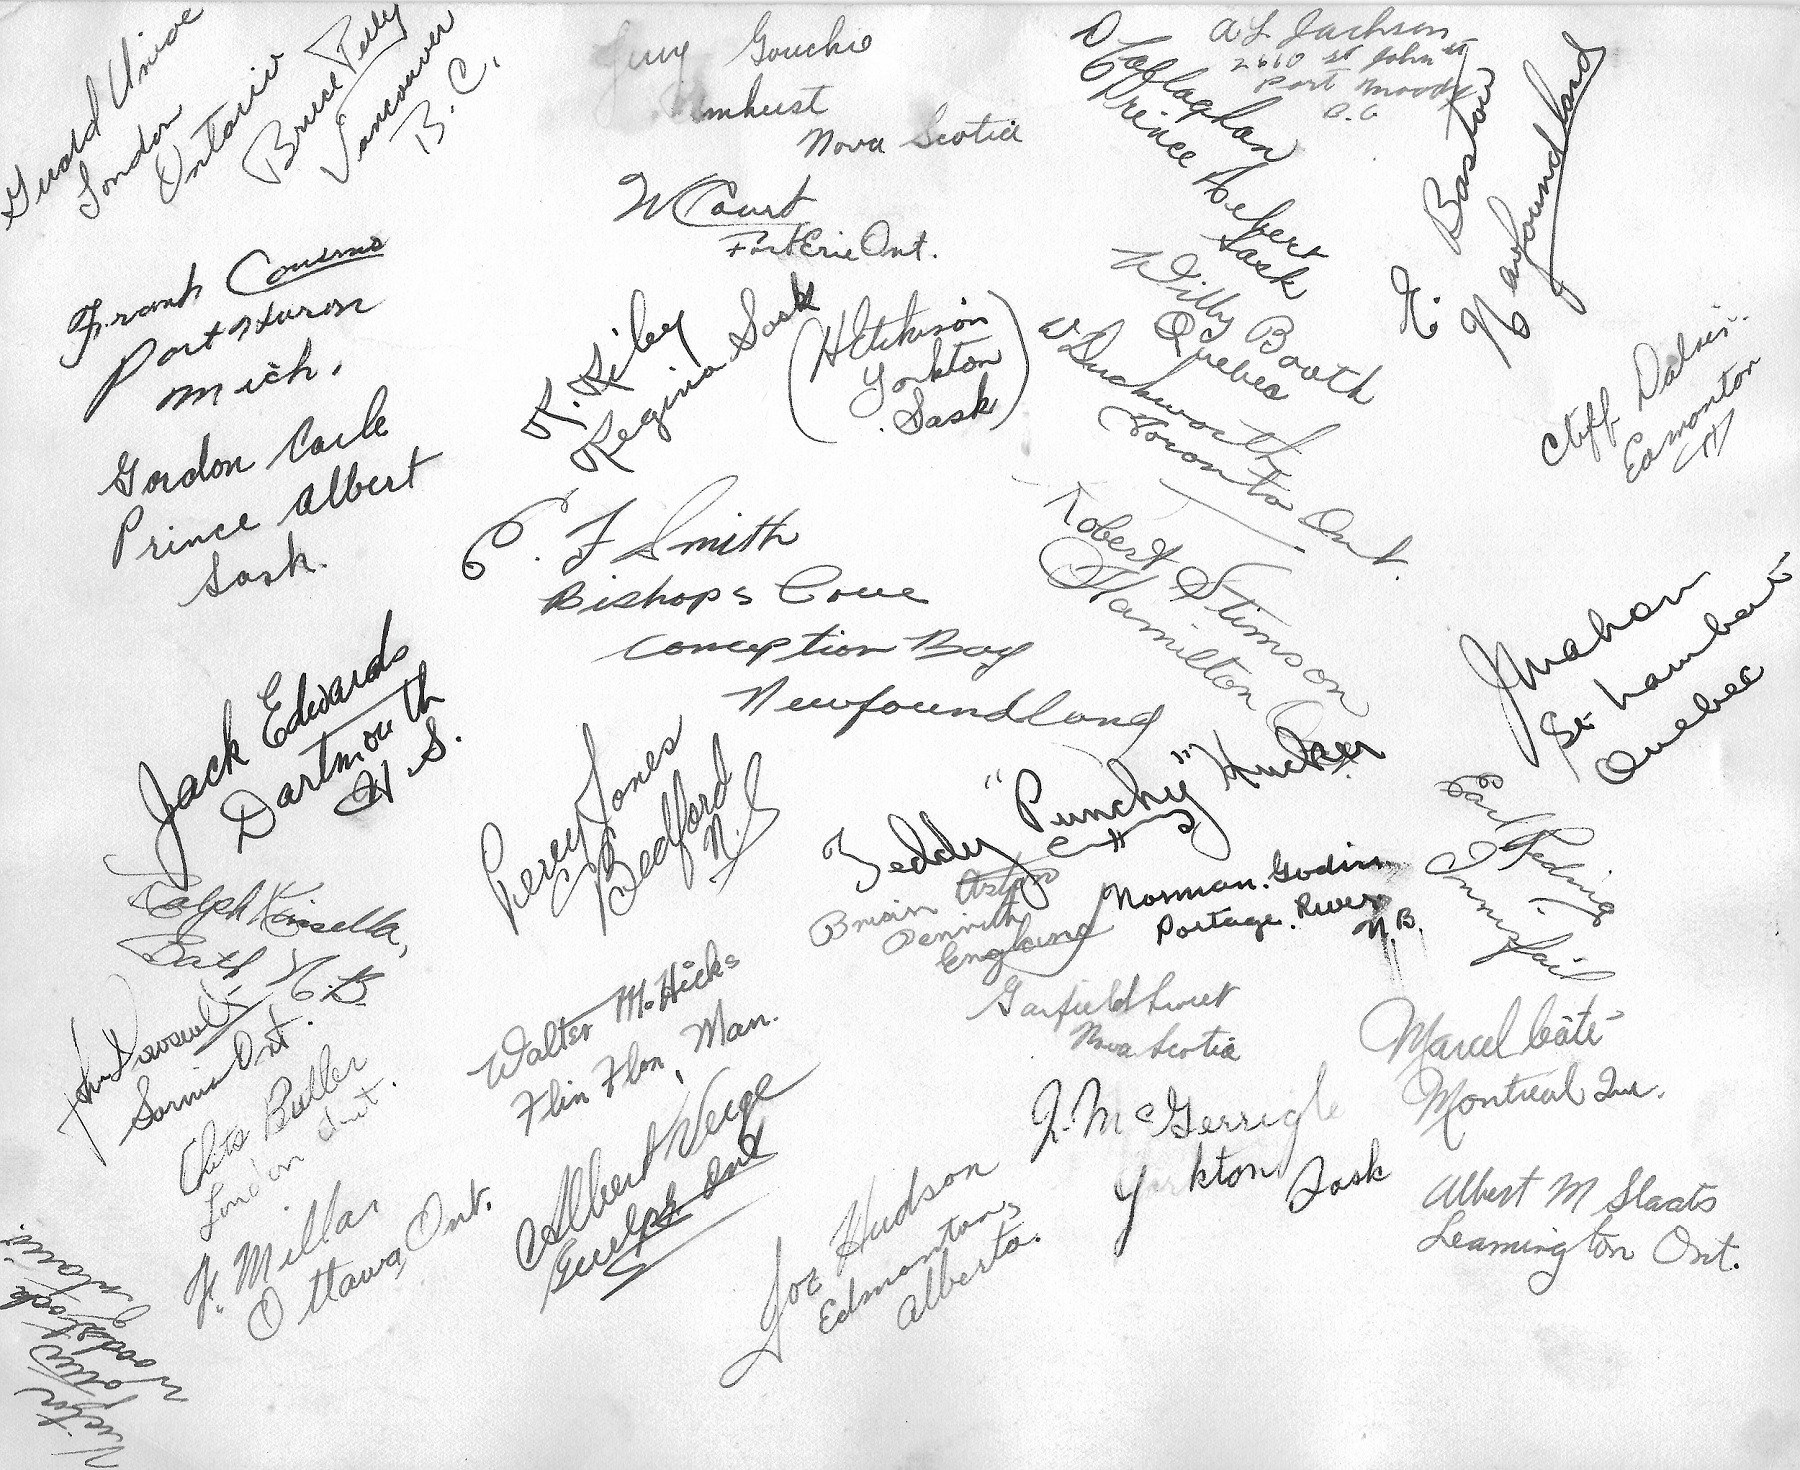 London
Ontario
Bruce
Vancouver
B.C.
Gouchie
Amhust
Nova Scotia
W Court
Fort Erie Ont.
A L Jackson
2610 St John St
Port Moody
B.C
O'Laflaghan
Prince Albert
Sask
E. Baston
Newfoundland
Frank Cousino
Port Huron
Mich.
Gordon Carle
Prince Albert
Sask.
R. Kiley
Regina Sask
(
Yorkton
Sask)
Willy Booth
Quebec
W Duckworth
Toronto Ont.
Cliff
Edmonton
C. F Smith
Bishops Cove
Conception Bay
Newfoundland
Robert Stimson
Hamilton
J Mahon
St Lambert
Quebec
Jack Edwards
Dartmouth
N.S.
Percy Jones
Bedford
N.S
Teddy "Punchy" Hucker
Brian Aston
Penrith
England
Norman. Godin
Portage. River
N.B.
Earl
Innisfail
Ralph Kinsella,
Bath N.B.
Sarnia Ont.
Walter McHicks
Flin Flon, Man.
Garfield
Nova Scotia
Marcel Côté
Montreal Que.
Butler
London Ont.
Albert Weige
Guelph Ont
J. McGerrigle
Yorkton Sask
H. Millar
Ottawa, Ont.
Joe Hudson
Edmonton,
Alberta.
Albert M Slaats
Leamington Ont.
Victor
Woodstock
Ontario